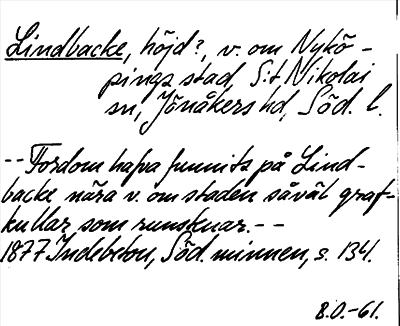 Lindbacke, höjd?, v. om Nykö-
pings stad, S:t Nikolai
sn, Jönåkers hd, Söd. l.
-- Fordom hafva funnits på Lind-
backe nära v. om staden såväl graf-
kullar som runstenar. --
1877 Indebetou, Söd. minnen, s. 134.
B.O.-61.